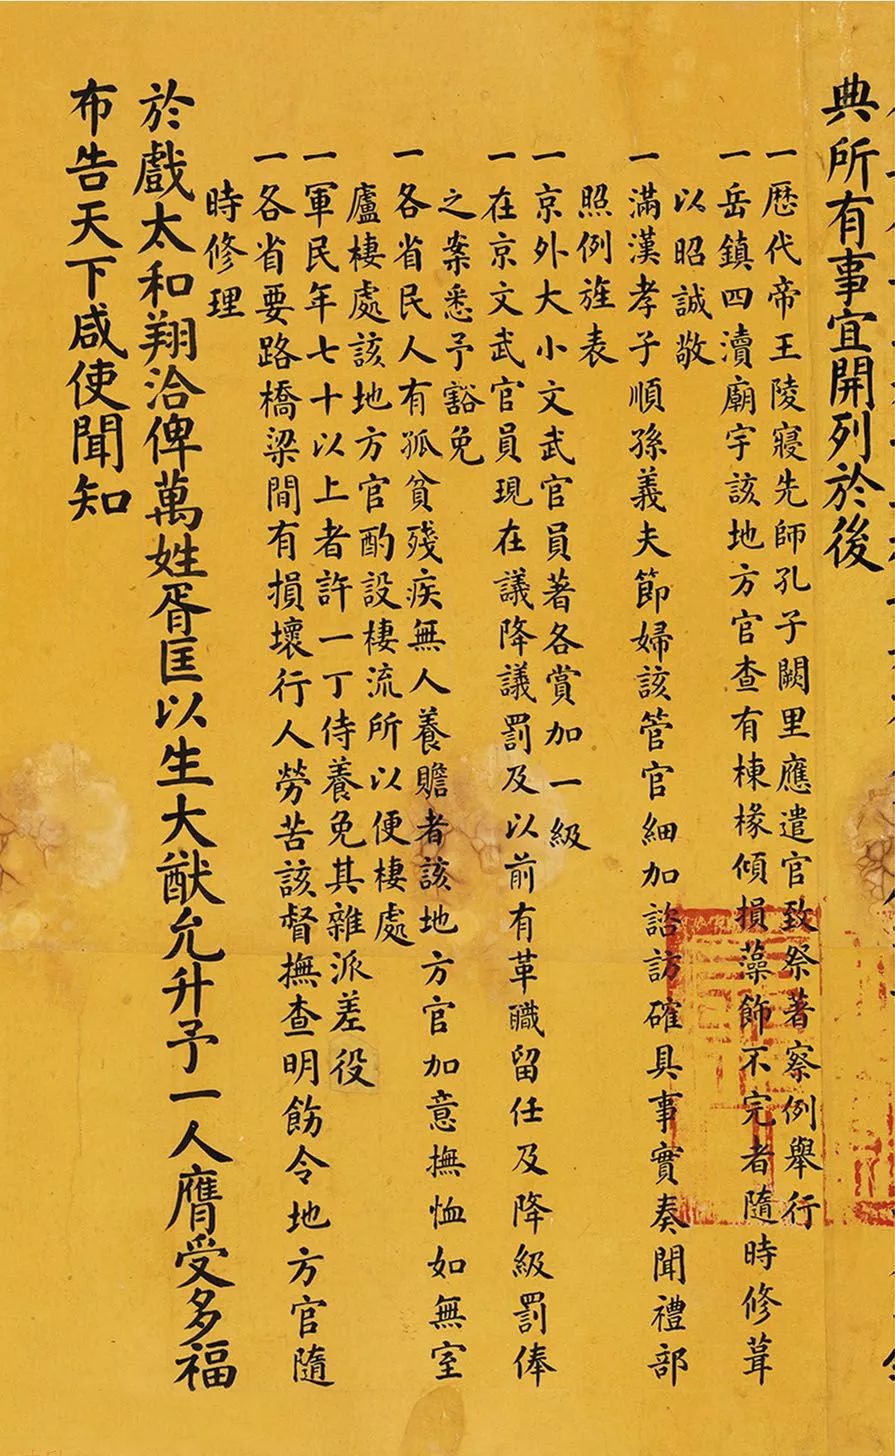 典所有事宜開列於後
一歷代帝王陵寢先師孔子闕里應遣官致祭著察例舉行
一岳鎮四瀆廟宇該地方官查有棟椽傾損藻飾不完者隨時修葺
以昭誠敬
一滿漢孝子順孫義夫節婦該管官細加諮訪確具事實奏聞禮部
照例旌表
一京外大小文武官員著各賞加一級
一在京文武官員現在議降議罰及以前有革職留任及降級罰俸
之案悉予豁免
一各省民人有孤貧殘疾無人養贍者該地方官加意撫恤如無室
廬棲處該地方官酌設棲流所以便棲處
一軍民年七十以上者許一丁侍養免其雜派差役
一各省要路橋梁間有損壞行人勞苦該督撫查明飭令地方官隨
時修理
於戲太和翔洽俾萬姓胥匡以生大猷允升予一人膺受多福
布告天下咸使聞知